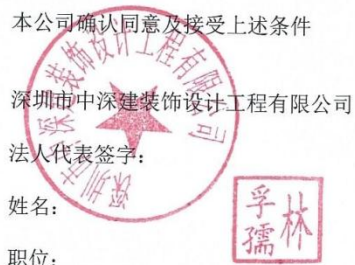 本公司确认同意及接受上述条件
深圳市中深建装饰设计工程有限公司
法人代表签字：
姓名：
职位：
深圳市中深建装饰设计工程有限公司
林孚孺